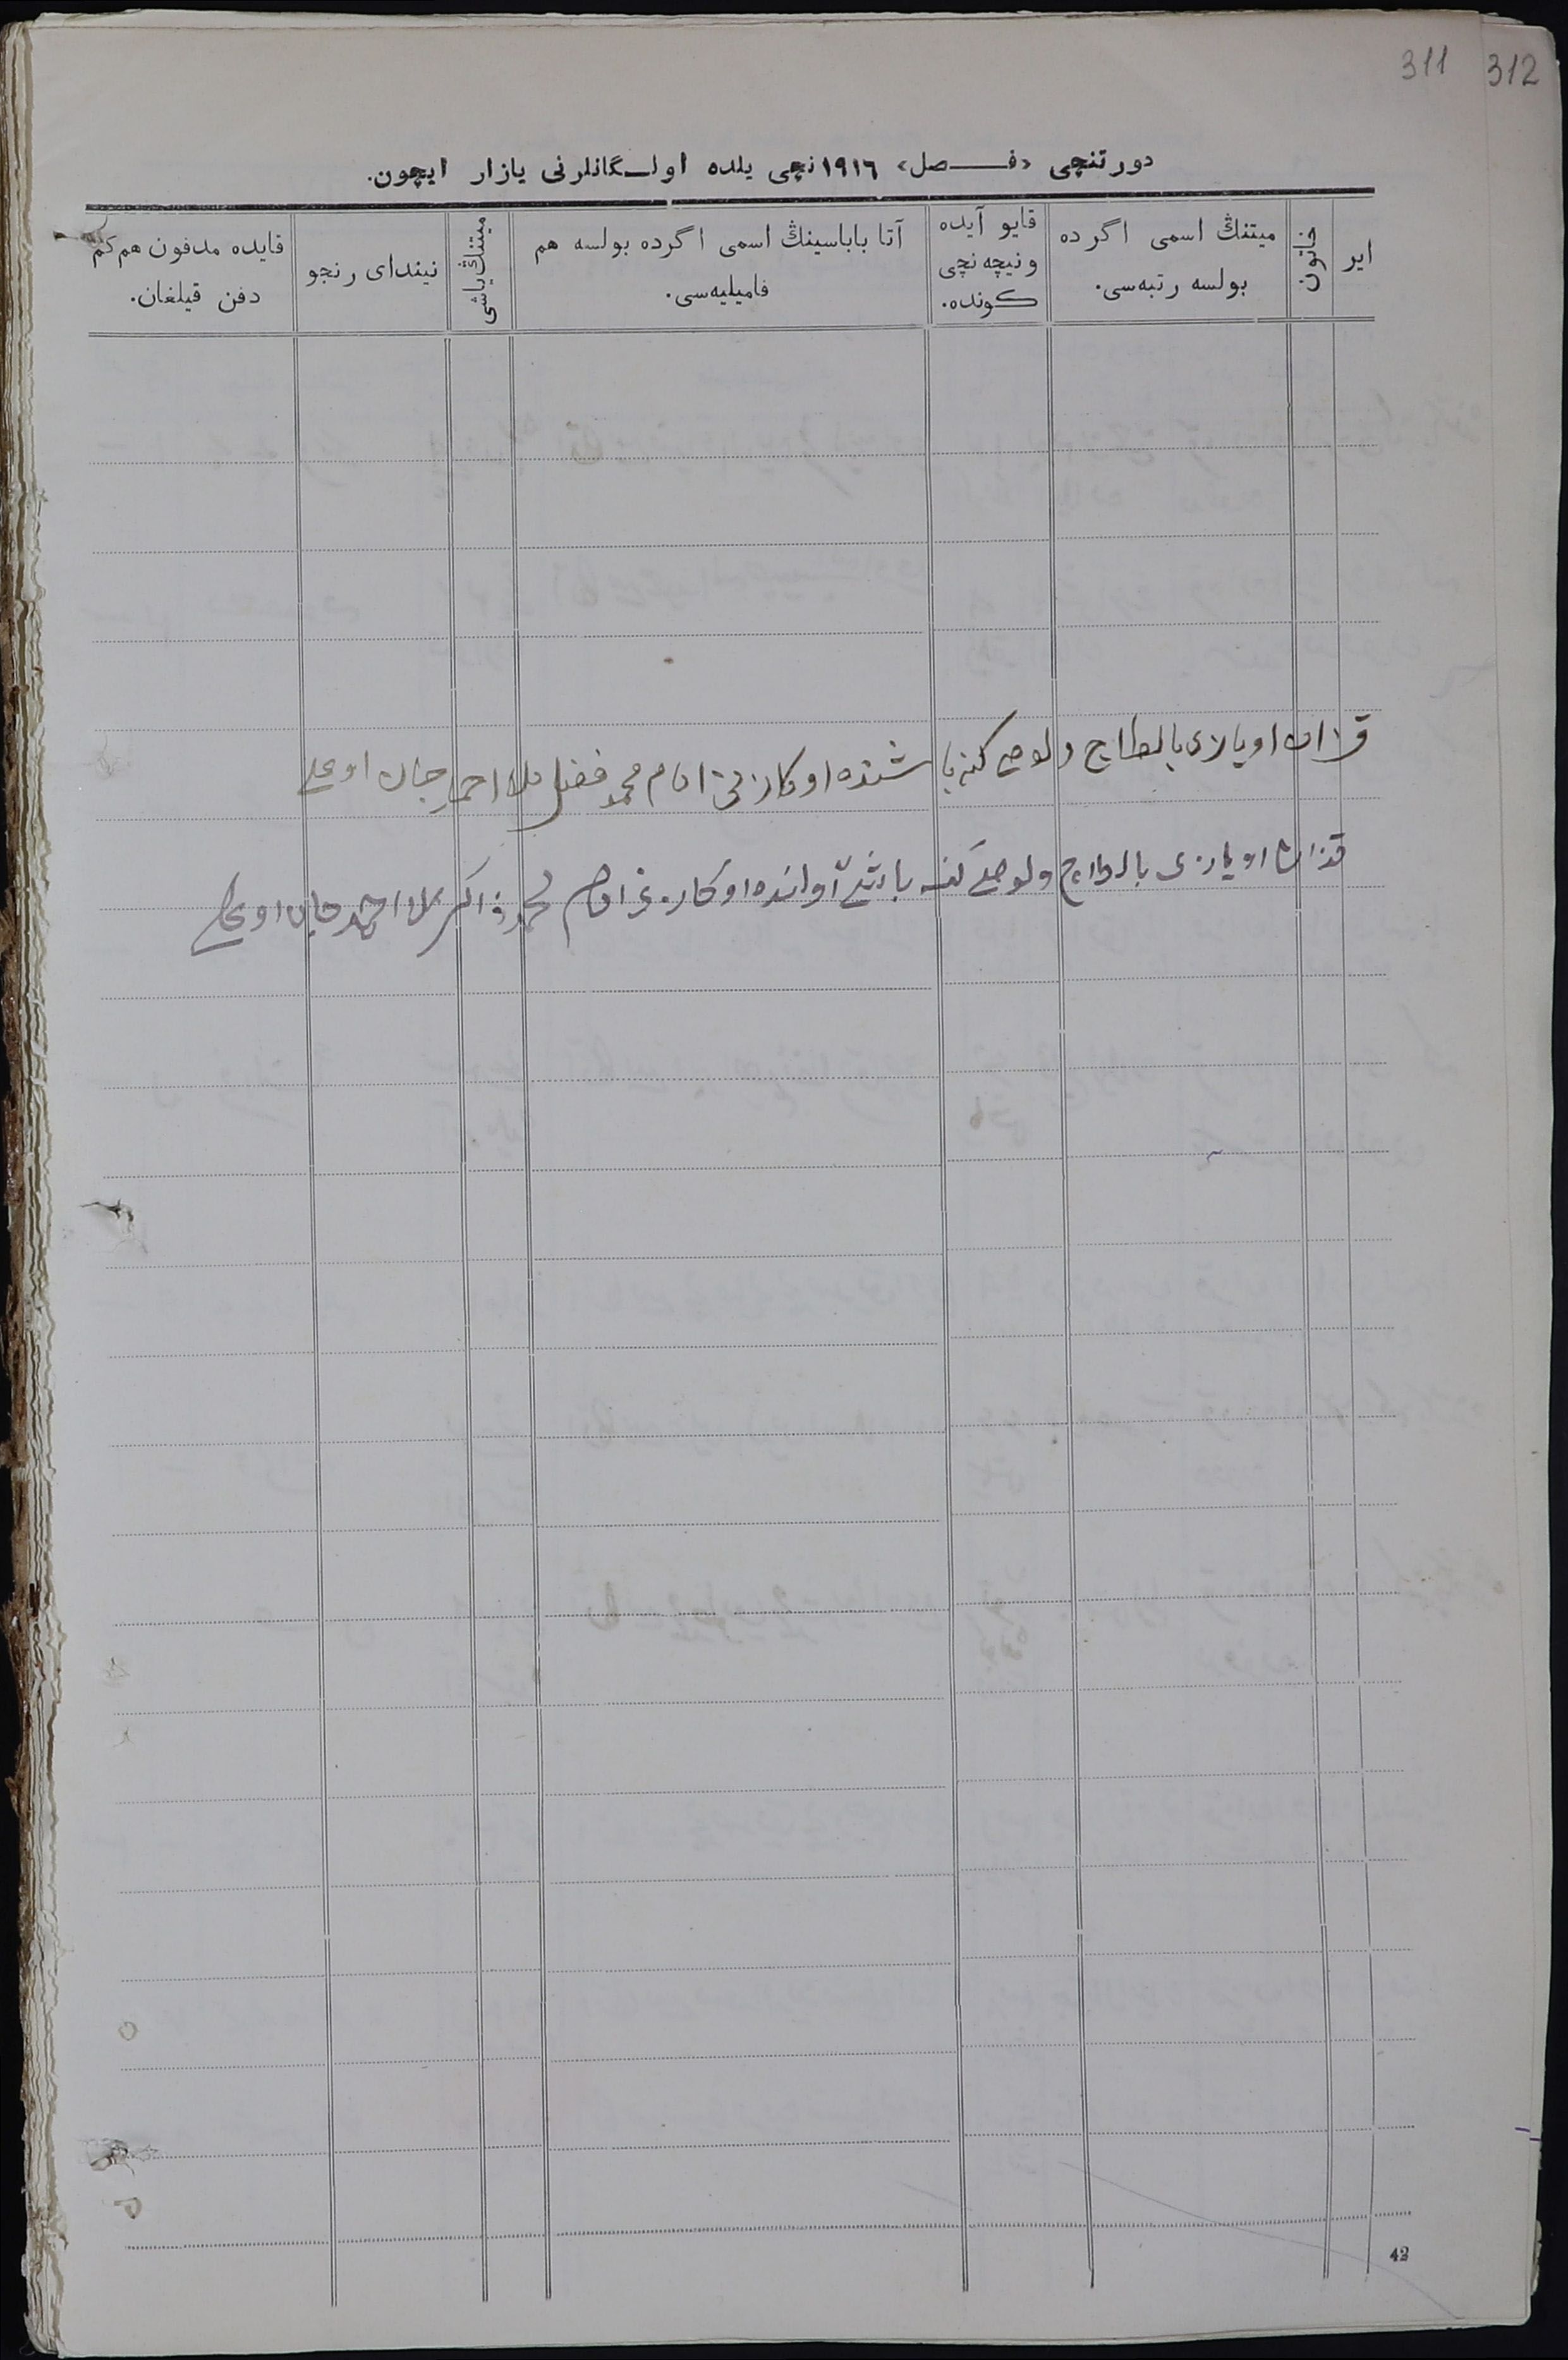 311 312
دورتنچی «فصل» ١٩١٦ نچی یلده اولـگانلرنی یازار ایچون.
ایر
خاتون
میتنڭ اسمی اگرده
بولسه رتبه‌سی.
قایو آیده
ونیچه نچی
کونده.
آتا باباسینڭ اسمی اگرده بولسه هم
فامیلیه‌سی.
میتنڭ یاشی
نیندای رنجو
قایده مدفون هم کم
دفن قیلغان.
قزان اویازی بالطاج ولوصی کنه با شنده اوکازنی امام محمد ملا احمدجان اوغلی
قزان اویازی بالطاج ولوصی کنه باش آولنده اوکازنی امام محمد ذاکر ملا احمدجان اوغلی
42